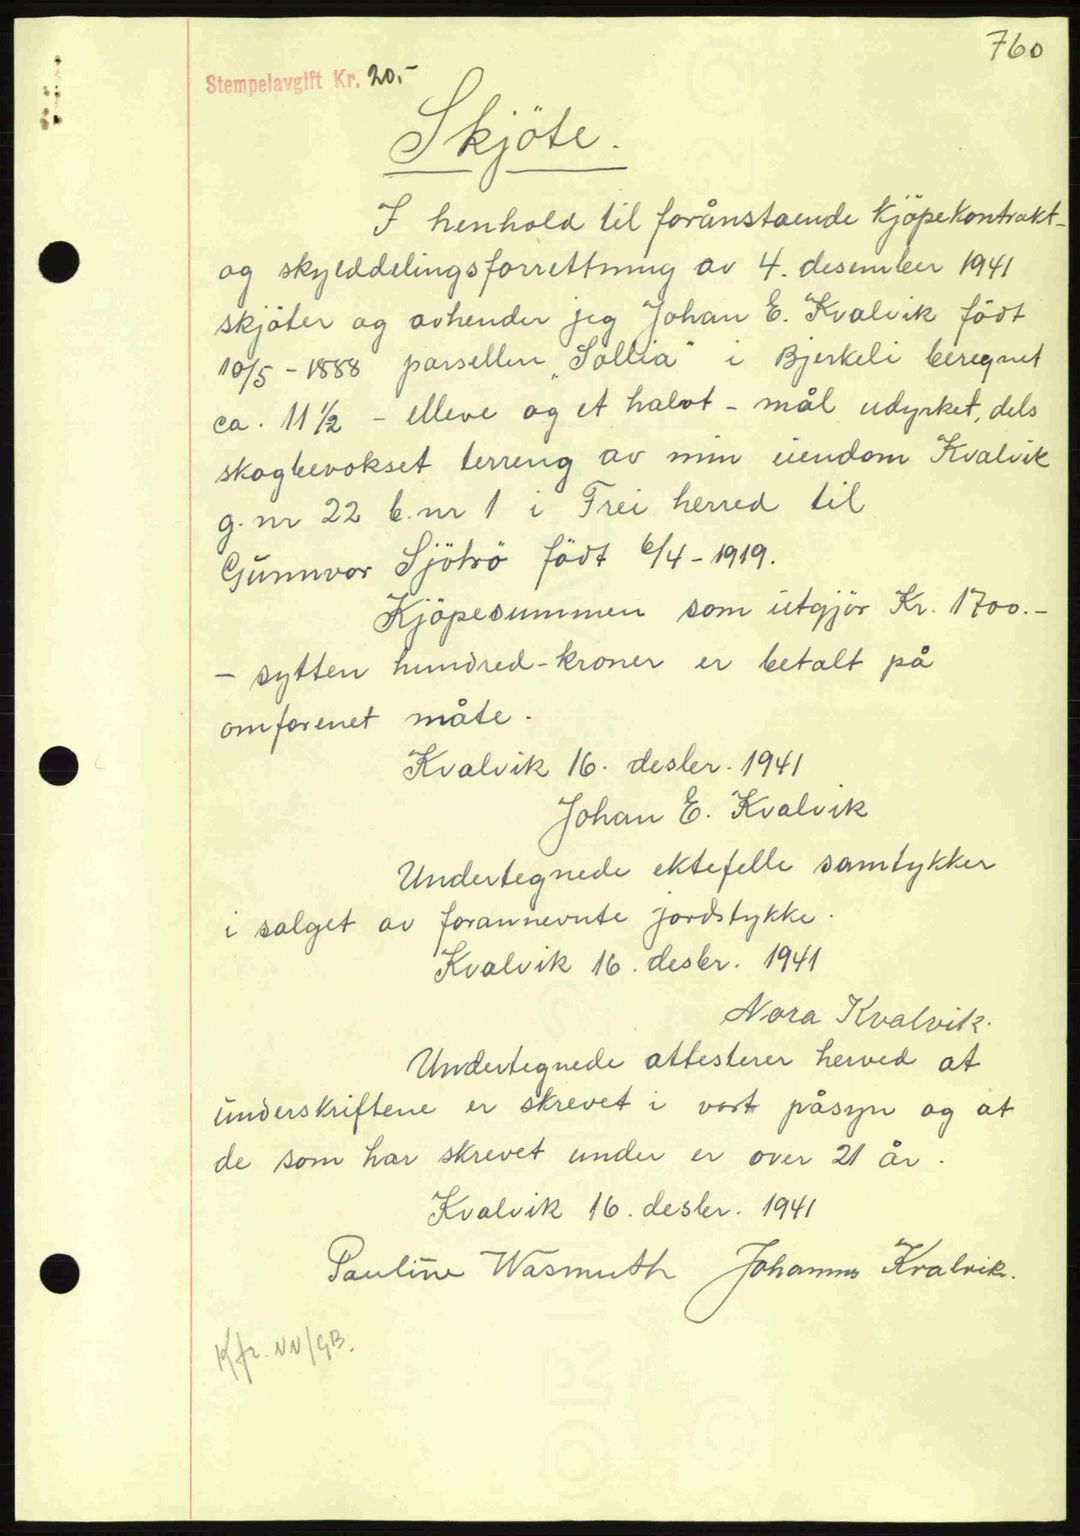 760
Stempelavgift Kr. 20.-
Skjöte.
I henhold til forånstaende Kjöpekontrakt-
og skylddelingsforrettning av 4. desember 1941
skjöter og avhender jeg Johan E. Kvalvik födt
10/5 - 1888 parsellen „Sollia" i Bjerkeli beregnet
ca. 11 1/2 - elleve og et halvt - mål udyrket, dels
skogbevokset terreng av min eiendom Kvalvik
g. nr 22 b. nr 1 i Frei herred til
Gunnvor Sjötrö födt 6/4 - 1919.
Kjöpesummen som utgjör Kr. 1700.-
- sytten hundred - kroner er betalt på
omforenet måte.
Kvalvik 16. desbr. 1941
Johan E. Kvalvik
Undertegnede ektefelle samtykker
i salget av forannevnte jordstykke.
Kvalvik 16. desbr. 1941
Nora Kvalvik.
Undertegnede attesterer herved at
underskriftene er skrevet i vort påsyn og at
de som har skrevet under er over 21 år.
Kvalvik 16. desbr. 1941
Pauline Wasmuth Johannes Kvalvik.
Kfr. NN/GB.